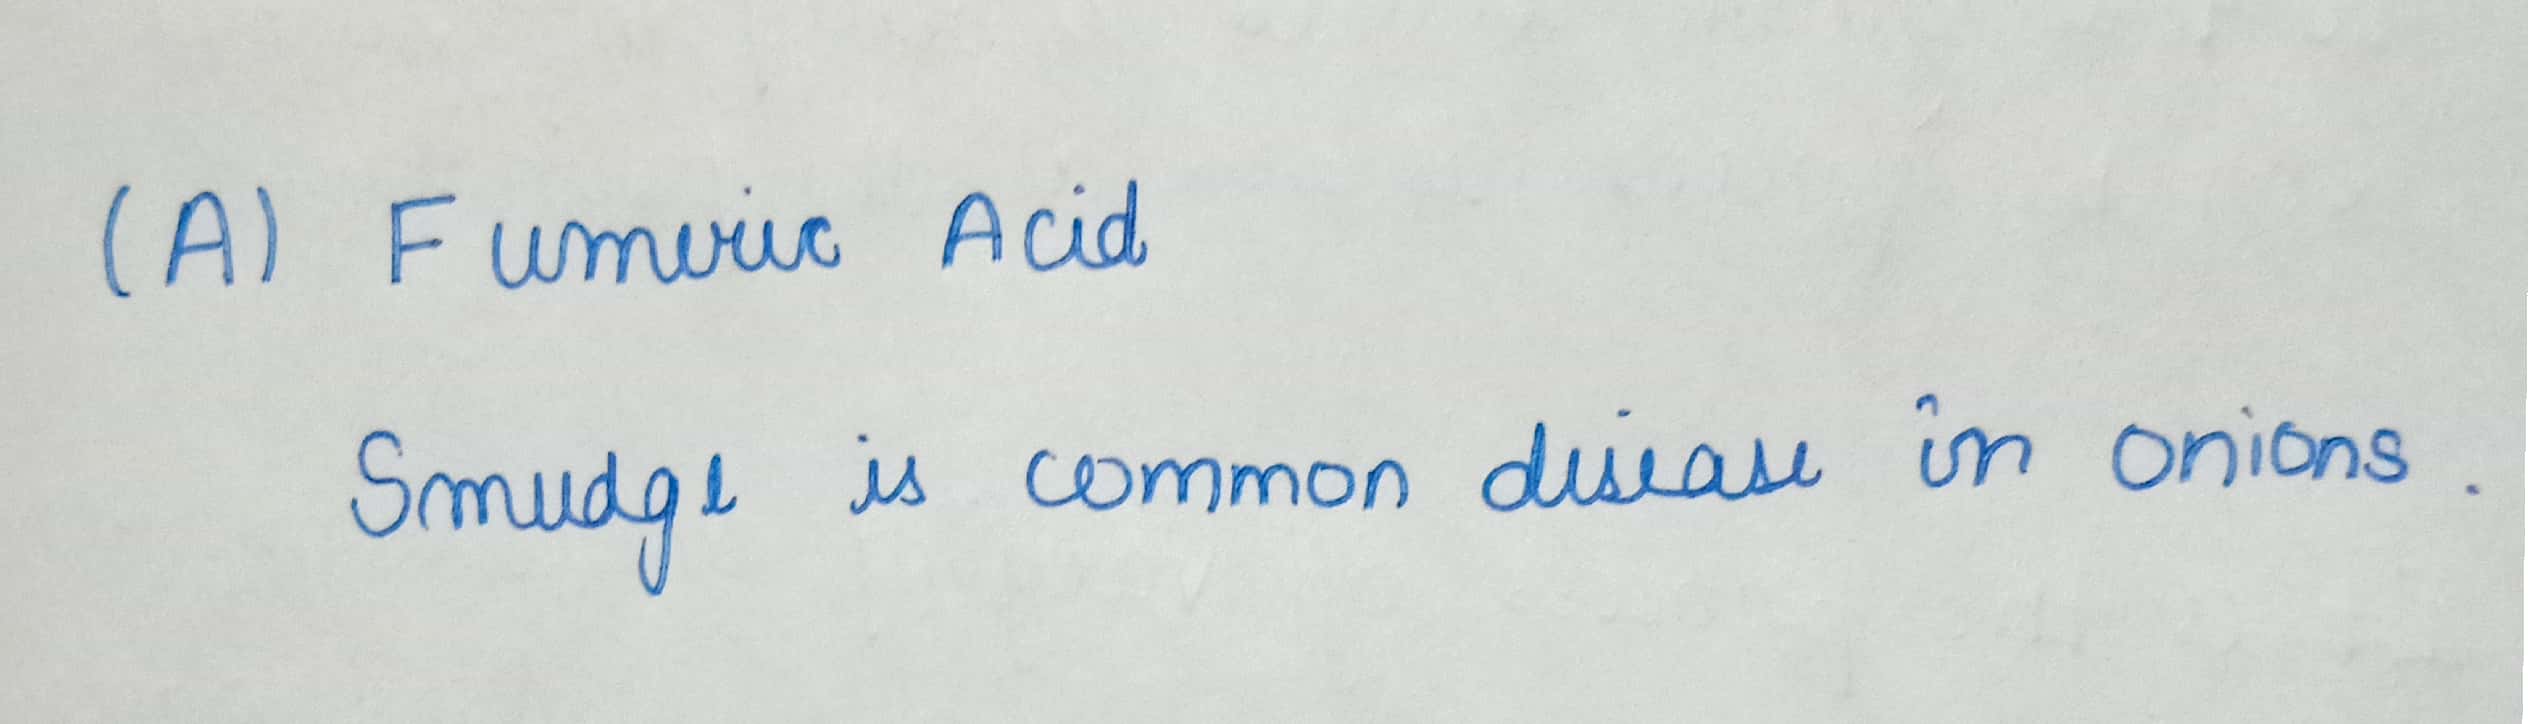 (A) Fumeric Acid
Smudge is common disease in onions.